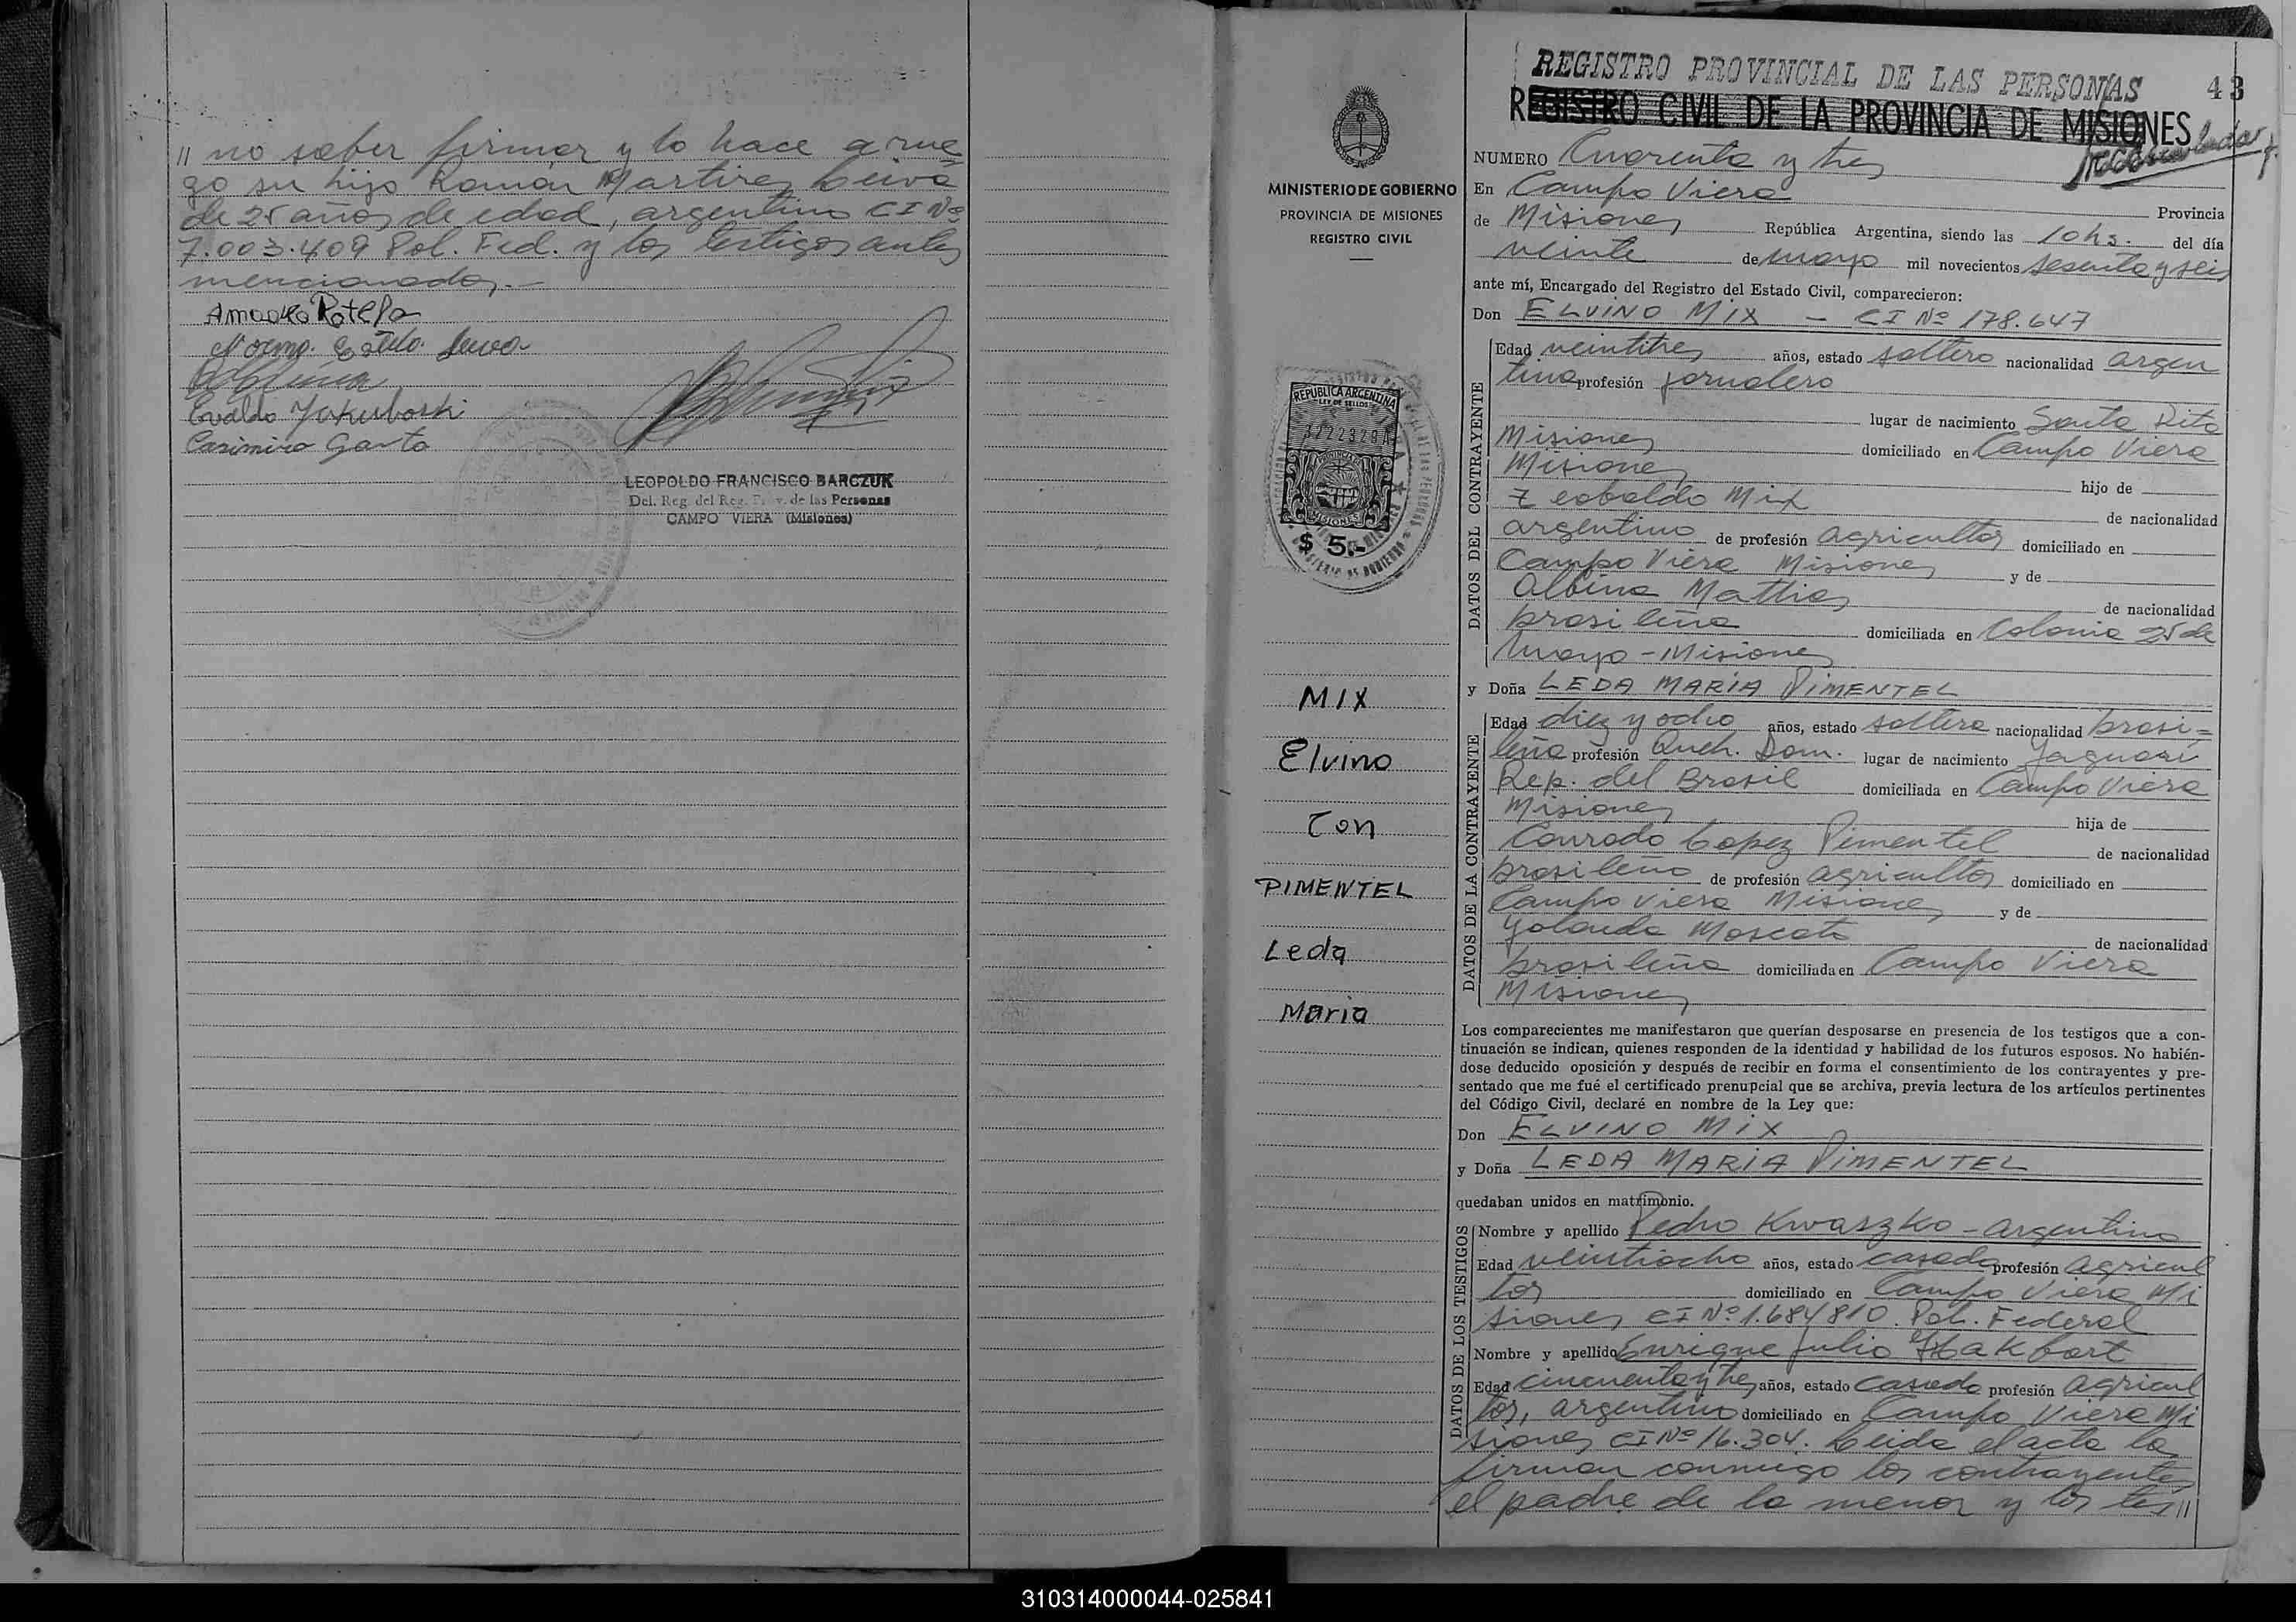 // no saber firmar y lo hace a rue
go su hijo Ramón Martires Leiva
de 25 años de edad, argentino CI Nº
7.003.409 Pol. Fed. y los testigos antes
mencionados.-
Norma Estela Leiva
Casimiro
LEOPOLDO FRANCISCO BARCZUK
Del. Reg. del Reg. Prov. de las Personas
CAMPO VIERA (Misiones)
MINISTERIO DE GOBIERNO
PROVINCIA DE MISIONES
REGISTRO CIVIL
REPUBLICA ARGENTINA
LEY DE SELLOS
MISIONES
$ 5.-
MIX
Elvino
Con
PIMENTEL
Leda
Maria
REGISTRO PROVINCIAL DE LAS PERSONAS
43
REGISTRO CIVIL DE LA PROVINCIA DE MISIONES
NUMERO Cuarenta y tres
En Campo Viera
Provincia
de Misiones República Argentina, siendo las 10 hs. del día
veinte de mayo mil novecientos sesenta y seis
ante mí, Encargado del Registro del Estado Civil, comparecieron:
Don ELVINO MIX - CI Nº 178.647
DATOS DEL CONTRAYENTE
Edad veintitres años, estado soltero nacionalidad argen
tina profesión jornalero
lugar de nacimiento Santa Rita
Misiones domiciliado en Campo Viera
Misiones hijo de
Teobaldo Mix de nacionalidad
argentino de profesión agricultor domiciliado en
Campo Viera Misiones y de
Albina Mathias de nacionalidad
brasileña domiciliada en Colonia 25 de
Mayo - Misiones
y Doña LEDA MARIA PIMENTEL
DATOS DE LA CONTRAYENTE
Edad diez y ocho años, estado soltera nacionalidad brasi=
leña profesión Queh. Dom. lugar de nacimiento Jaguari
Rep. del Brasil domiciliada en Campo Viera
Misiones hija de
Conrado Lopez Pimentel de nacionalidad
brasileño de profesión agricultor domiciliado en
Campo Viera Misiones y de
Yolanda Moscato de nacionalidad
brasileña domiciliada en Campo Viera
Misiones
Los comparecientes me manifestaron que querían desposarse en presencia de los testigos que a con-
tinuación se indican, quienes responden de la identidad y habilidad de los futuros esposos. No habién-
dose deducido oposición y después de recibir en forma el consentimiento de los contrayentes y pre-
sentado que me fué el certificado prenupcial que se archiva, previa lectura de los artículos pertinentes
del Código Civil, declaré en nombre de la Ley que:
Don ELVINO MIX
y Doña LEDA MARIA PIMENTEL
quedaban unidos en matrimonio.
DATOS DE LOS TESTIGOS
Nombre y apellido Pedro Kwaszko - argentino
Edad veintiocho años, estado casado profesión agricul
tor domiciliado en Campo Viera Mi
siones CI Nº 1.684810. Pol. Federal
Nombre y apellido Enrique Julio
Edad cincuenta y tres años, estado casado profesión agricul
tor, argentino domiciliado en Campo Viera Mi
siones CI Nº 16.304. Leida el acta la
firman conmigo los contrayentes
el padre de la menor y los tes//
310314000044-025841